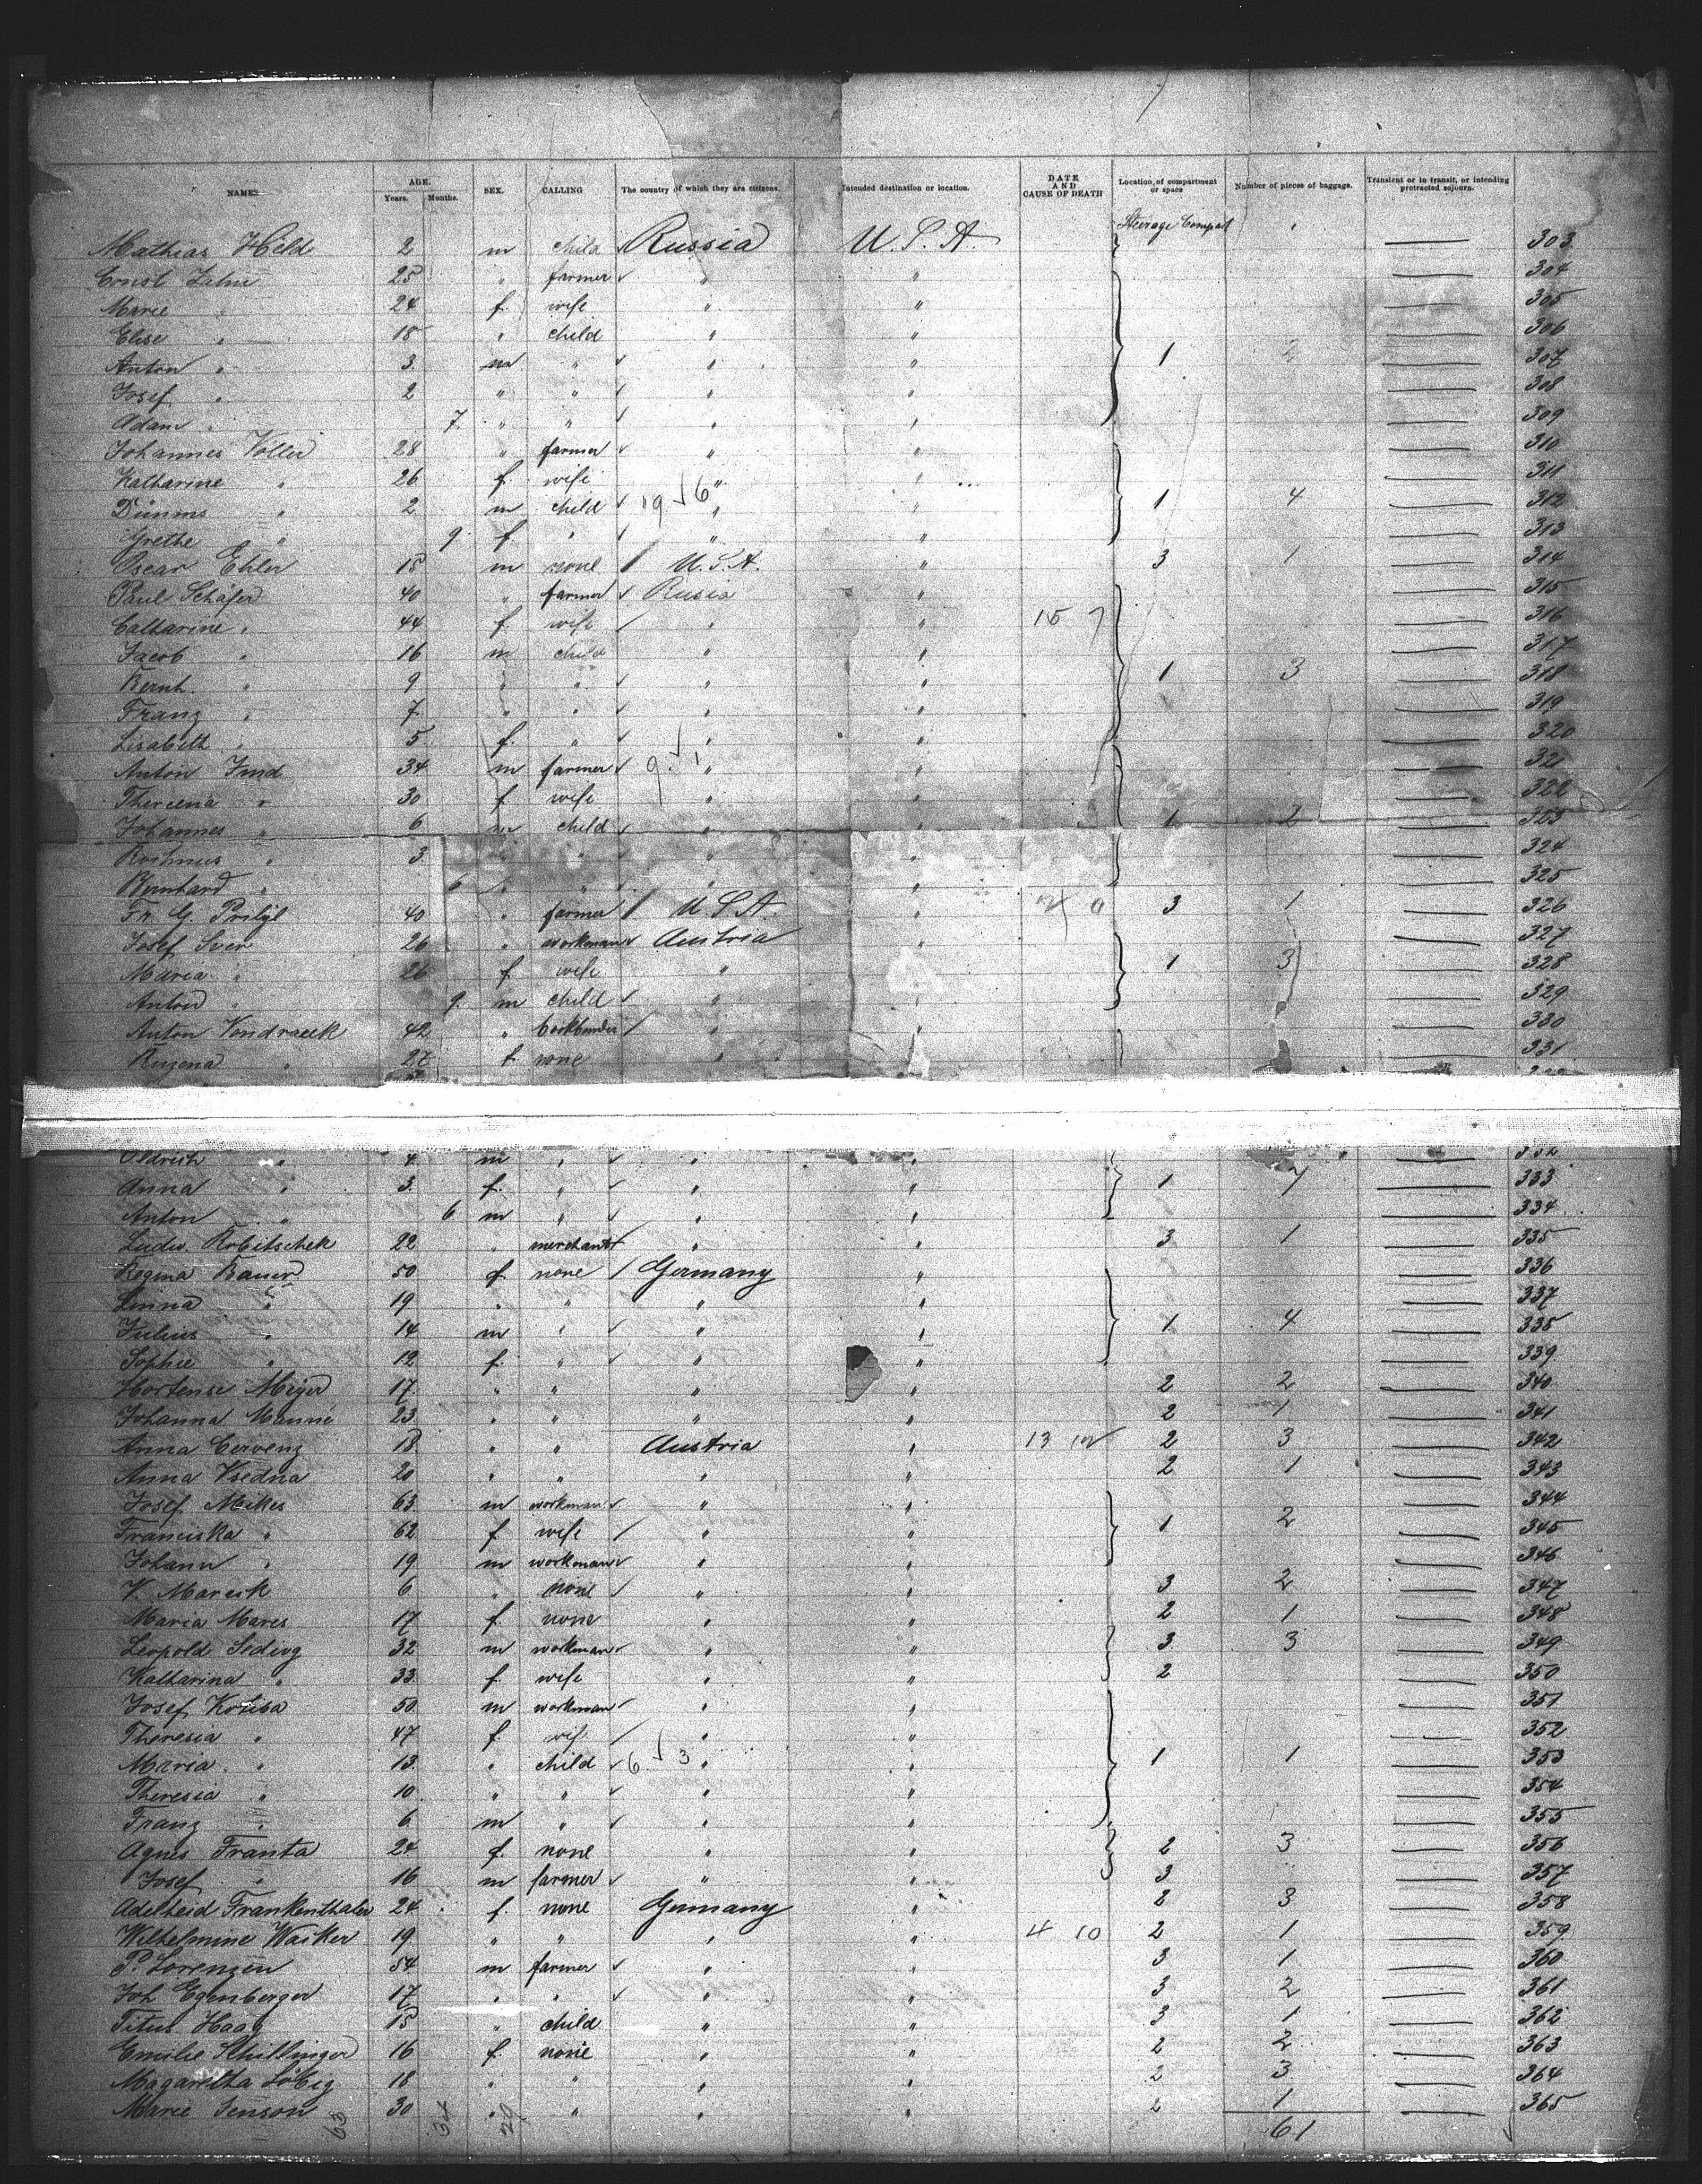 NAMES. AGE. Years. Months. SEX. CALLING The country of which they are citizens. Intended destination or location. DATE AND CAUSE OF DEATH Location of compartment or space Number of pieces of baggage. Transient or in transit, or intending protracted sojourn.
Steerage Compart
Mathias Held 2 m child Russia U.S.A. 303
Ernst 25 " farmer " " 304
Marie " 24 f. wife " " 305
Elise " 18 " child " " 306
Anton " 3 m " " " 1 2 307
Josef " 2 " " " " 308
Adam " 7 " " " " 309
Johannes Voller 28 " farmer " " 310
Katharine " 26 f. wife " " 311
" 2 m child 19 6 " " 1 4 312
Grethe " 9 f " " " 313
Oscar Ehler 15 m none U.S.A. " 3 1 314
Paul Schäfer 40 " farmer Rusia " 315
Catharine " 44 f. wife " " 15 7 316
Jacob " 16 m child " " 317
Bernh. " 9 " " " " 1 3 318
Franz " 7 " " " " 319
Lisabeth " 5 f. " " " 320
Anton 34 m farmer 9 1 " " 321
" 30 f wife " " 322
Johannes " 6 m child " " 1 2 323
" 3 " " " " 324
Bernhard " 6 " " " " 325
Fr. G. Pribyl 40 " farmer U.S.A. " 0 3 1 326
Josef Sver 26 " workman Austria " 327
Maria " 26 f. wife " " 1 3 328
Anton " 9 m child " " 329
Anton Vondracek 42 " " " 330
Ruzena " 27 f. none " " 331
Oldrich " 4 m " " " 332
Anna " 3 f. " " " 1 7 333
Anton " 6 m " " " 334
Ludw. Robitschek 22 " merchant " " 3 1 335
Regina Bauer 50 f. none Germany " 336
Linna " 19 " " " " 337
Julius " 14 m " " " 1 4 338
Sophie " 12 f. " " " 339
Hortense Meyer 17 " " " " 2 2 340
Johanna Manne 23 " " " " 2 1 341
Anna Cerveny 18 " " Austria " 13 2 3 342
Anna Vsedna 20 " " " " 2 1 343
Josef Mikes 63 m workman " " 344
Franciska " 62 f. wife " " 1 2 345
Johann " 19 m workman " " 346
V. Marcik 6 " none " " 3 2 347
Maria Mares 17 f. none " " 2 1 348
Leopold Sedivy 32 m workman " " 3 3 349
Katharina " 33 f. wife " " 2 350
Josef Kotiba 50 m workman " " 351
Theresia " 47 f. wife " " 352
Maria " 13 " child 6 3 " " 1 1 353
Theresia " 10 " " " " 354
Franz " 6 m " " " 355
Agnes Franta 24 f. none " " 2 3 356
Josef " 16 m farmer " " 3 357
Adelheid Frankenthaler 24 f. none Germany " 2 3 358
Wilhelmine Wasker 19 " " " " 4 10 2 1 359
P. Lorenzen 54 m farmer " " 3 1 360
Joh. Egenberger 17 " " " " 3 2 361
Titus Haag 15 " child " " 3 1 362
Emilie Schillinger 16 f. none " " 2 2 363
Magaretha Löbig 18 " " " " 2 3 364
Marie Jenson 30 " " " " 2 1 365
63 34 29 61